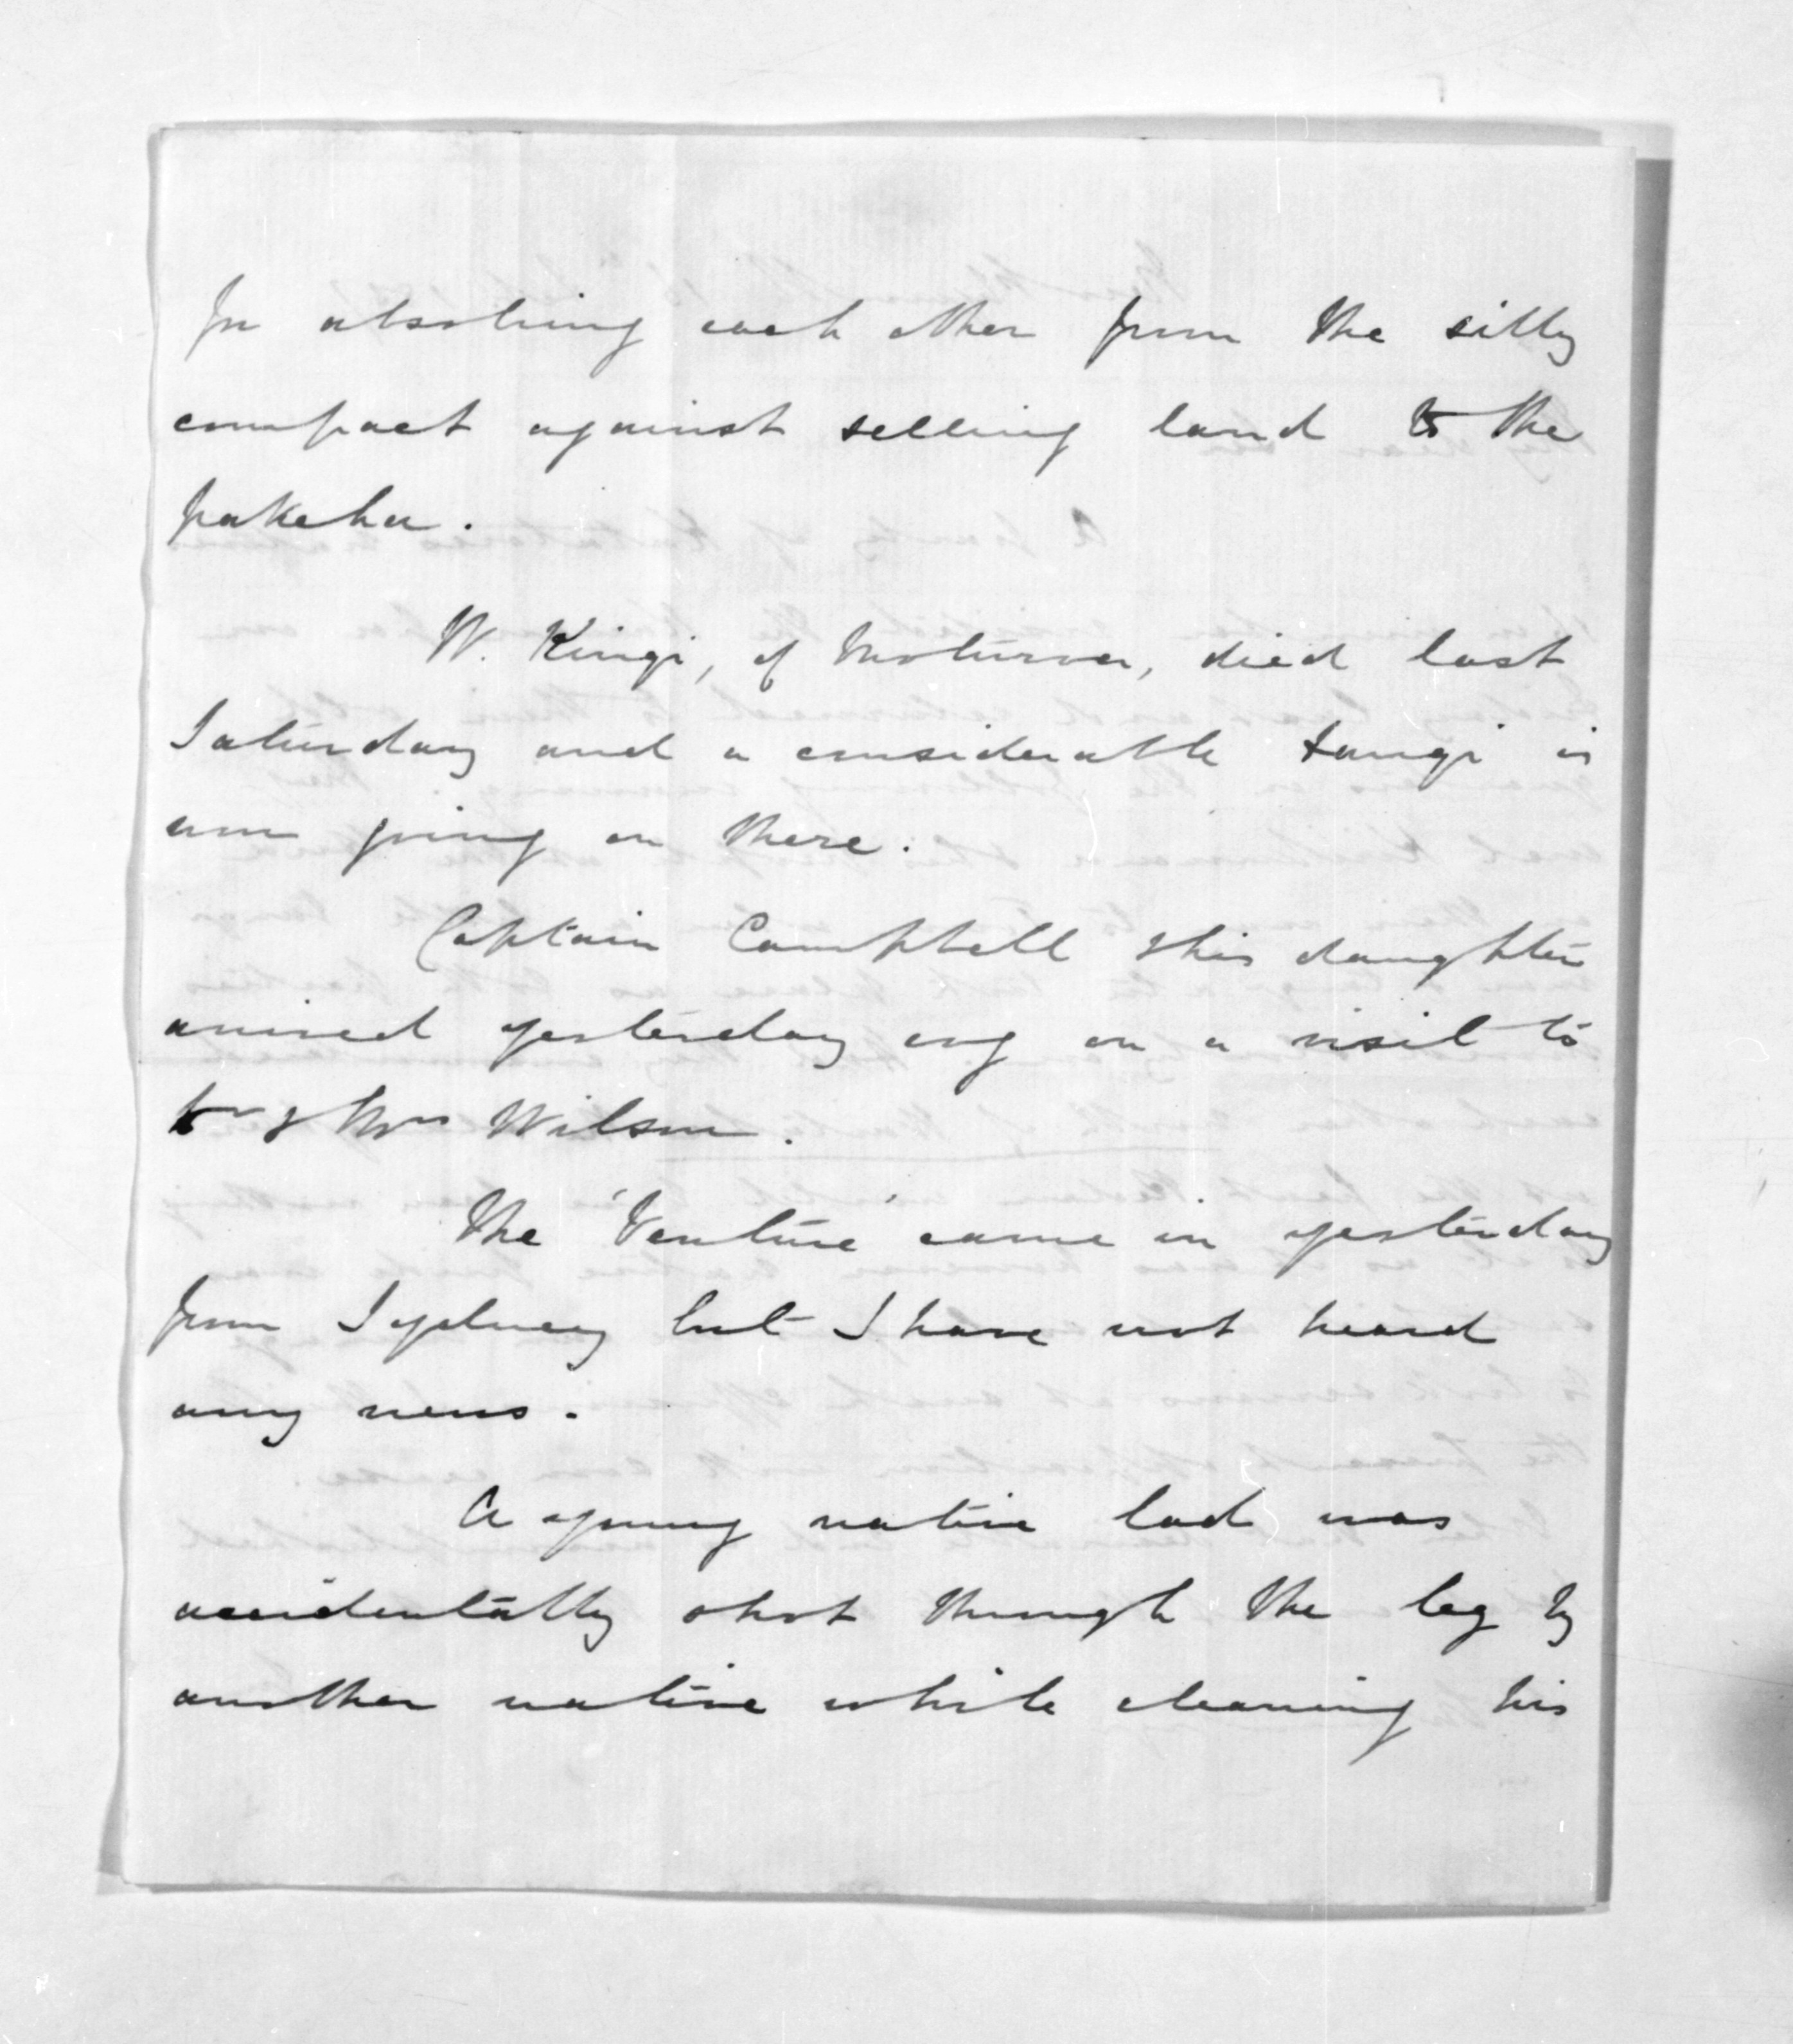 In absolving each other from the silly
compact against selling land to the
pakeha.
W. Kingi, of Moturoa, died last
Saturday and a considerable tangi is
now going on there.
Captain Campbell & his daughter
arrived yesterday on a visit to
& Mrs Wilson.
The 'Venture' came in yesterday
from Sydney but I have not heard
any news.
A young native lad was
accidentally shot through the leg by
another native while cleaning his